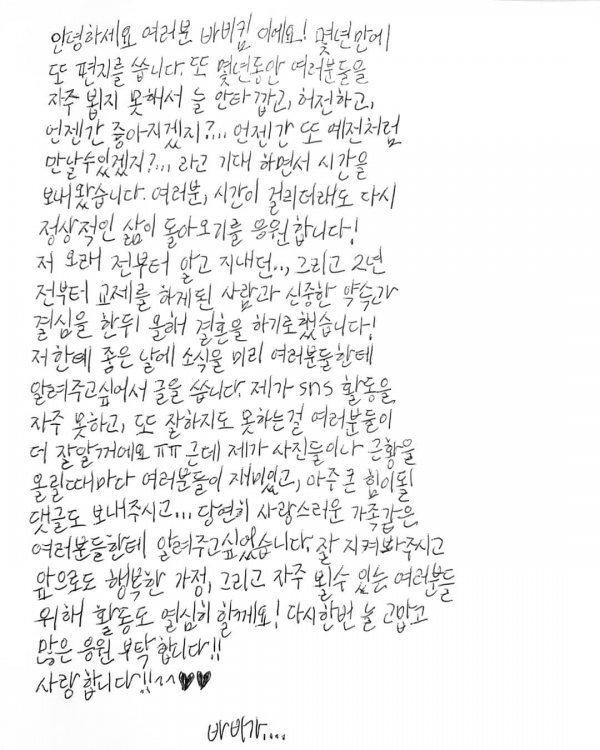 안녕하세요 여러분 바비킴 이에요! 몇년만에
또 편지를 씁니다. 또 몇년동안 여러분들을
자주 뵙지 못해서 늘 안타 깝고, 허전하고,
언젠간 좋아지겠지?... 언젠간 또 예전처럼
만날수있겠지?... 라고 기대 하면서 시간을
보내왔습니다. 여러분, 시간이 걸리더래도 다시
정상적인 삶이 돌아오기를 응원합니다!
저 오래 전부터 알고 지내던..., 그리고 2년
전부터 교제를 하게된 사람과 신중한 약속과
결심을 한뒤 올해 결혼을 하기로했습니다!
저한테 좋은 날에 소식을 미리 여러분들한테
알려주고싶어서 글을 씁니다. 제가 sns 활동을
자주 못하고, 또 잘하지도 못하는걸 여러분들이
더 잘알꺼에요 ㅠㅠ 근데 제가 사진들이나 근황을
올릴때마다 여러분들이 재미있고, 아주 큰 힘이될
댓글도 보내주시고... 당연히 사랑스러운 가족같은
여러분들한테 알려주고싶었습니다. 잘 지켜봐주시고
앞으로도 행복한 가정, 그리고 자주 뵐수 있는 여러분들
위해 활동도 열심히 할께요! 다시한번 늘 고맙고
많은 응원 부탁합니다!!
사랑합니다!!^^♥♥
바비가....